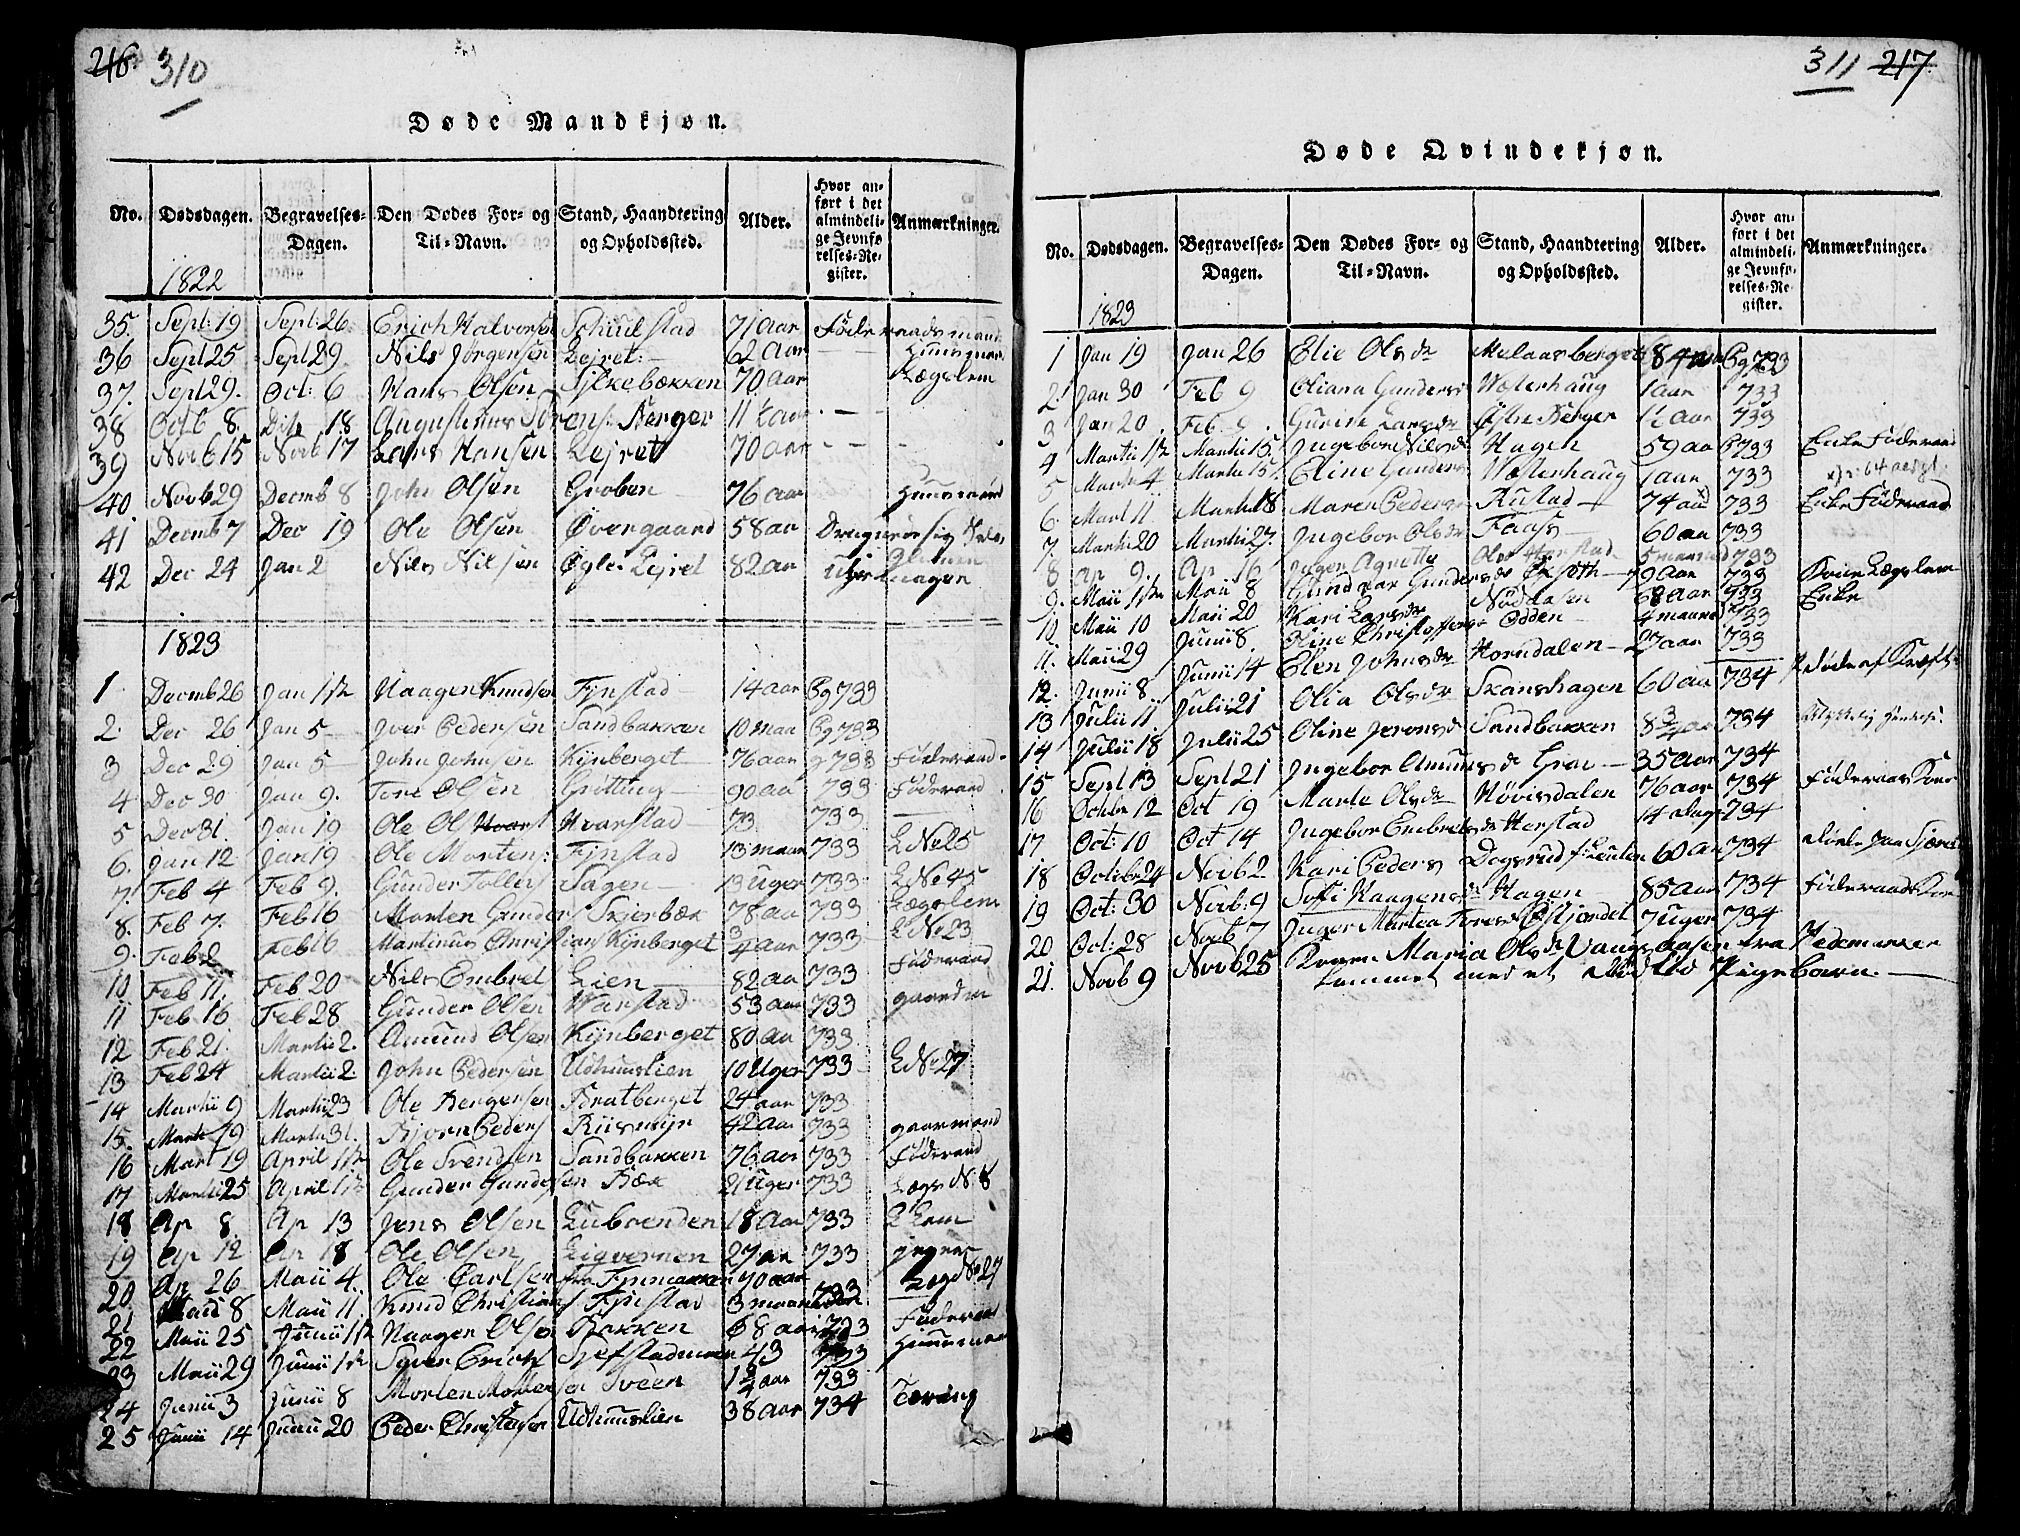 216 310
Døde Mandkjøn.
No. Dødsdagen. Begravelses-Dagen. Den Dødes For- og Til-Navn. Stand, Haandtering og Opholdssted. Alder. Hvor anført i det almindelige Jevnførelses-Register. Anmærkninger.
1822
35. Sept: 19 Sept: 26 Erich Halvorsen Schiulstad 71 Aar Føderaadsmand
36 Sept 25 Sept 29. Nils Jørgensen Lejret 62 Aar Huusmand
37. Sept 29. Oct: 6 Hans Olsen Sylkebakken 70 Aar Lægslem
38 Octb 8. Dito 18 Augustinus Berger 11 ½ aar
39 Novb 15 Novb 17 Lars Hansen Lejret 70 Aar
40 Novb 29 Decmb 8 John Olsen Groben 76 Aar Huusmand
41 Decmb 7 Dec 19 Ole Olsen Øvergaard 58 Aar
42 Dec 24 Jan 2 Nils Nilsen Øgle Lejret 82 Aar
1823
1 Decmb 26 Jan 1ste Haagen Knudsen Fynstad 14 aar Pg 733
2. Dec 26 Jan 5 Iver Pedersen Sandbakken 10 maa Pg 733
3 Dec 29 Jan 5 John Johnsen Kynberget 76 aar g 733 Føderaad
4 Dec 30 Jan 9. Tore Olsen Grøtting 90 aa 733 Føderaad
5 Dec 31. Jan 19 Ole Ol Hvarstad 73 733
6. Jan 12 Jan 19 Ole Mortens: Fynstad 13 maan 733 L No 25
7. Feb 4 Feb 9. Gunder Tollefs Sagen 13 Uger 733 L No 45
8. Feb 7. Feb 16 Morten Gunders Skjerbæk 78 aa 733 Lægslem
9. Feb 2 Feb 16 Martinus Christians Kynberget ¾ aar 733 L No 23
10 Feb 11 Feb 20 Nils Embret Lien 82 aa 733 Føderaad
11 Feb 16 Feb 28 Gunder Olsen Warstad 53 aar 733 gaardm
12 Feb 21. Martii 2. Amund Olsen Kynberget 80 aa 733
13 Feb 24 Martii 2. John Pedersen Udhuuslien 10 Uger 733 L No 27
14 Martii 9 Martii 23 Ole Bergersen Bratberget 24 aar 733
15. Marti 19 Martii 31. Bjørn Peders Riismyr 42 Aar 733 gaarmand
16 Mart 19 April 1ste Ole Svendsen Sandbakken 76 aar 733 Føderaad
17 Martii 25 April 1ste Gunder Gundersen Bæk 2 Uger 733 Lægs N: 8
18 Ap 8 Ap 13 Jens Olsen Lubrenden 18 Aar 733 L Lem
19 Ap 12 Ap 18 Ole Olsen 27 aa 733
20 Ap 26 Maii 4. Ole Carlsen fra Finmarken 40 aar Lægd No 27
21 Maii 8 Maii 11. Knud Christians Fynstad 3 maaneder 733
22 Maii 25 Junii 1ste Haagen Olsen Bakken 68 aar 733 Føderaad
23 Maii 29 Junii 1ste Syver Erichs 43 733 Huusmand
24 Junii 3 Junii 8 Morten Mortensen Sveen 1 ¾ aar 733
25 Junii 14 Junii 20 Peder Christophersen Udhuuslien 38 Aar 734 Tæring
311 217
Døde Qvindekjøn.
No. Dødsdagen. Begravelses-Dagen. Den Dødes For- og Til-Navn. Stand, Haandtering og Opholdssted. Alder. Hvor anført i det almindelige Jevnførelses-Register. Anmærkninger.
1823
1 Jan 19 Jan 26 Elie Olsdr Melaasberget 84 aar Pg 733
2. Jan 30 Feb 9 Oliana Gunders Wæsterhaug 1 aar 733
3 Jan 20 Feb 9. Gurine Larsdr Østre Berger 1½ aar 733
4 Martii 1ste Martii 15. Ingebor Nilsdr Hagen 59 aa P 733 Enke Føderaad
5 Marti 4 Martii 15. Eline Gunders Wæsterhaug 1 aar 733
6. Mart 11 Marti 18 Maren Peders Rustad 74 aa 733 Enke Føderaad
7. Martii 20 Martii 27. Ingebor Olsdr Faass 60 aa 733
8 Ap 9. Ap 16 Inger Agnette Ols Harstad 5 maaned 733
9. Maii 1ste Maii 8 Gunders 79 Aar 733 Kone Lægslem
10 Maii 10 Maii 20 Kari Larsdr Nøddaasen 68 aar 733 Enke
11. Maii 29 Junii 8. Oline Christoffers Odden 4 maaned 733
12. Junii 8 Junii 14 Elen Johnsdr Horndalen 27 aar 733
13 Julii 11 Julii 21 Olia Olsdr Skanshagen 60 aa 734 Døde af Kræft
14 Julii 18 Julii 25 Oline Jensd Sandbakken 8 ¾ aar 734
15 Sept 13 Sept 21 Ingebor Amunds d Grae 35 aar 734
16 Octbr 12 Oct 19 Marte Olsdr Høvisdalen 76 aar 734 Føderaads Kone
17 Oct: 10 Oct 14 Ingebor Embretsdr Harstad 14 dage 734
18 Octobr 24 Novb 2 Kari Peders Dogsrud 60 Aar 734
19 Oct: 30 Novb: 9 Sofi Haagensdr Hagen 85 Aar 734 Føderaads Kone
20 Oct: 28 Novb 7 Inger Martea Tores 7 Uger 734
21. Novb 9 Novb 25 Karen Maria Olsdr Vangsaasen fra Hedemarken
kommet med et Dødfød Pigebarn.